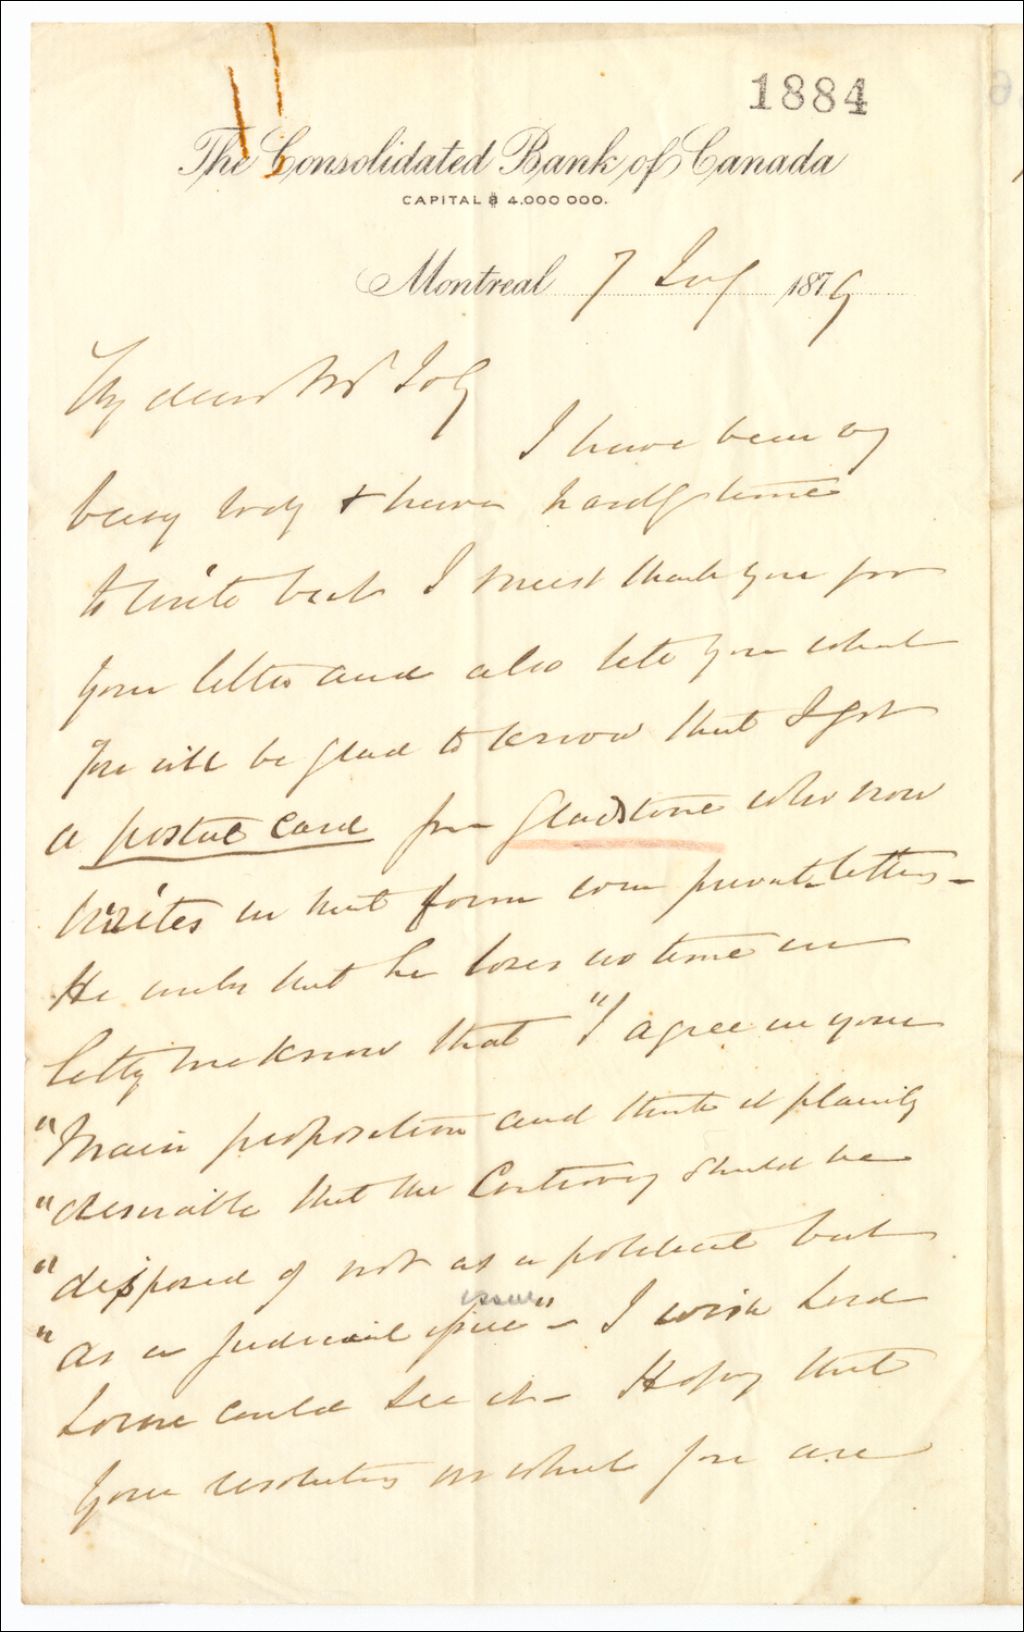 1884
The Consolidated Bank of Canada
CAPITAL $ 4.000 000.
Montreal 7 July 1879
My dear Mr Joly
I have been very
busy today & have hardly time
to write but I must thank you for
your letter and also tell you what
you will be glad to know that I got
a postal card from Gladstone who now
writes in that form even private letters -
He writes that he loses no time in
letting me know that "I agree in your
"Main proposition and think it plainly
"desirable that the Controversy should be
"disposed of not as a political but
issue
"as a judicial issue" - I wish Lord
Lorne could see it - Hoping that
your resolution in what you are